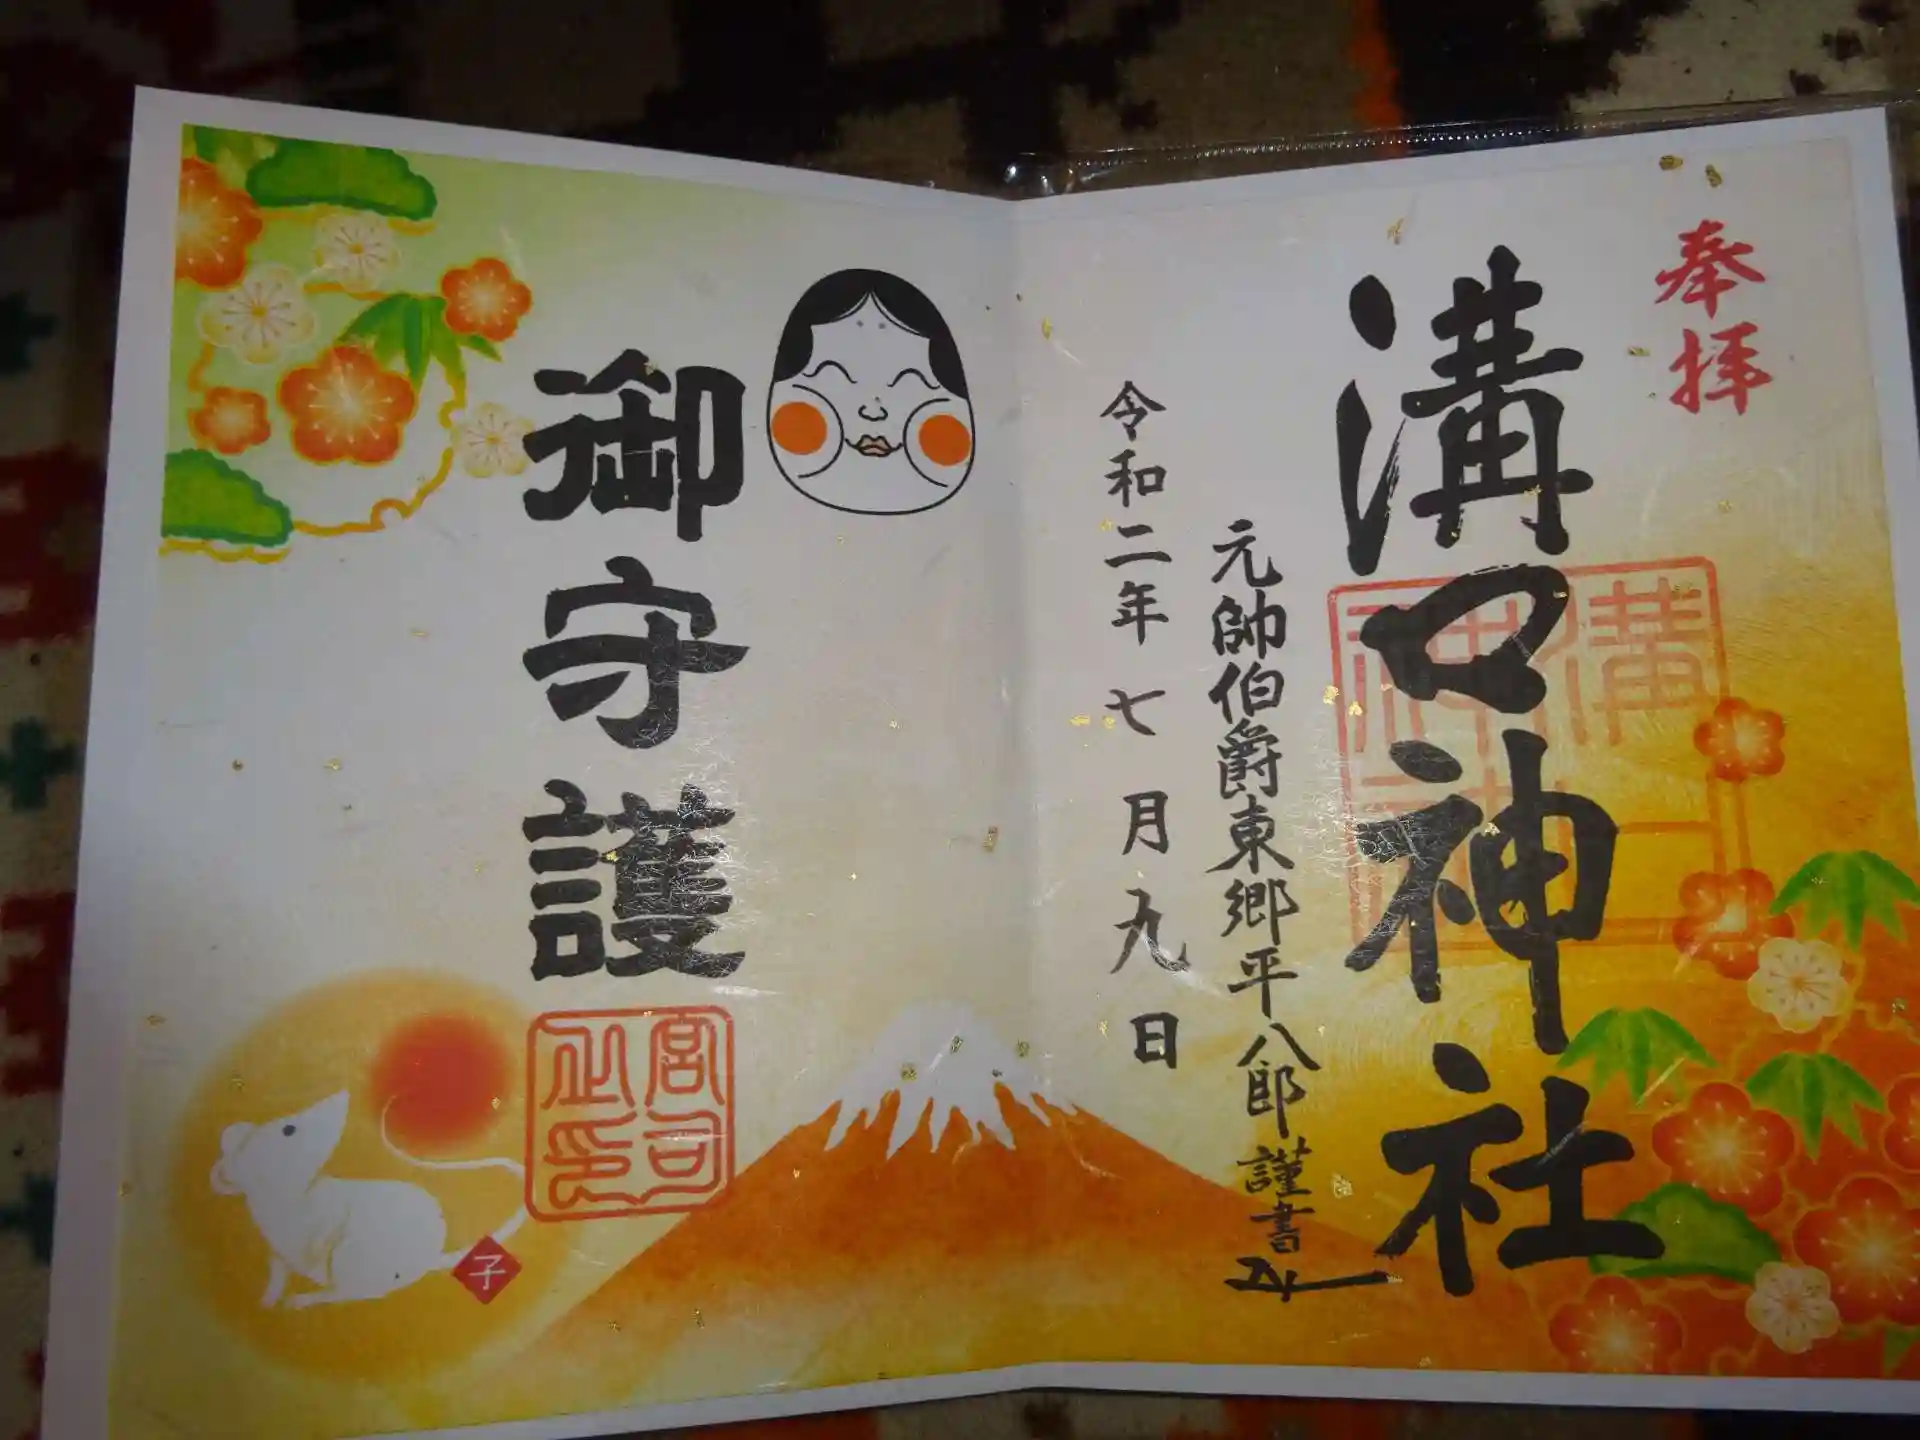 奉拝
溝口神社
元帥伯爵東郷平八郎謹書
令和二年七月九日
御守護
宮司之印
子